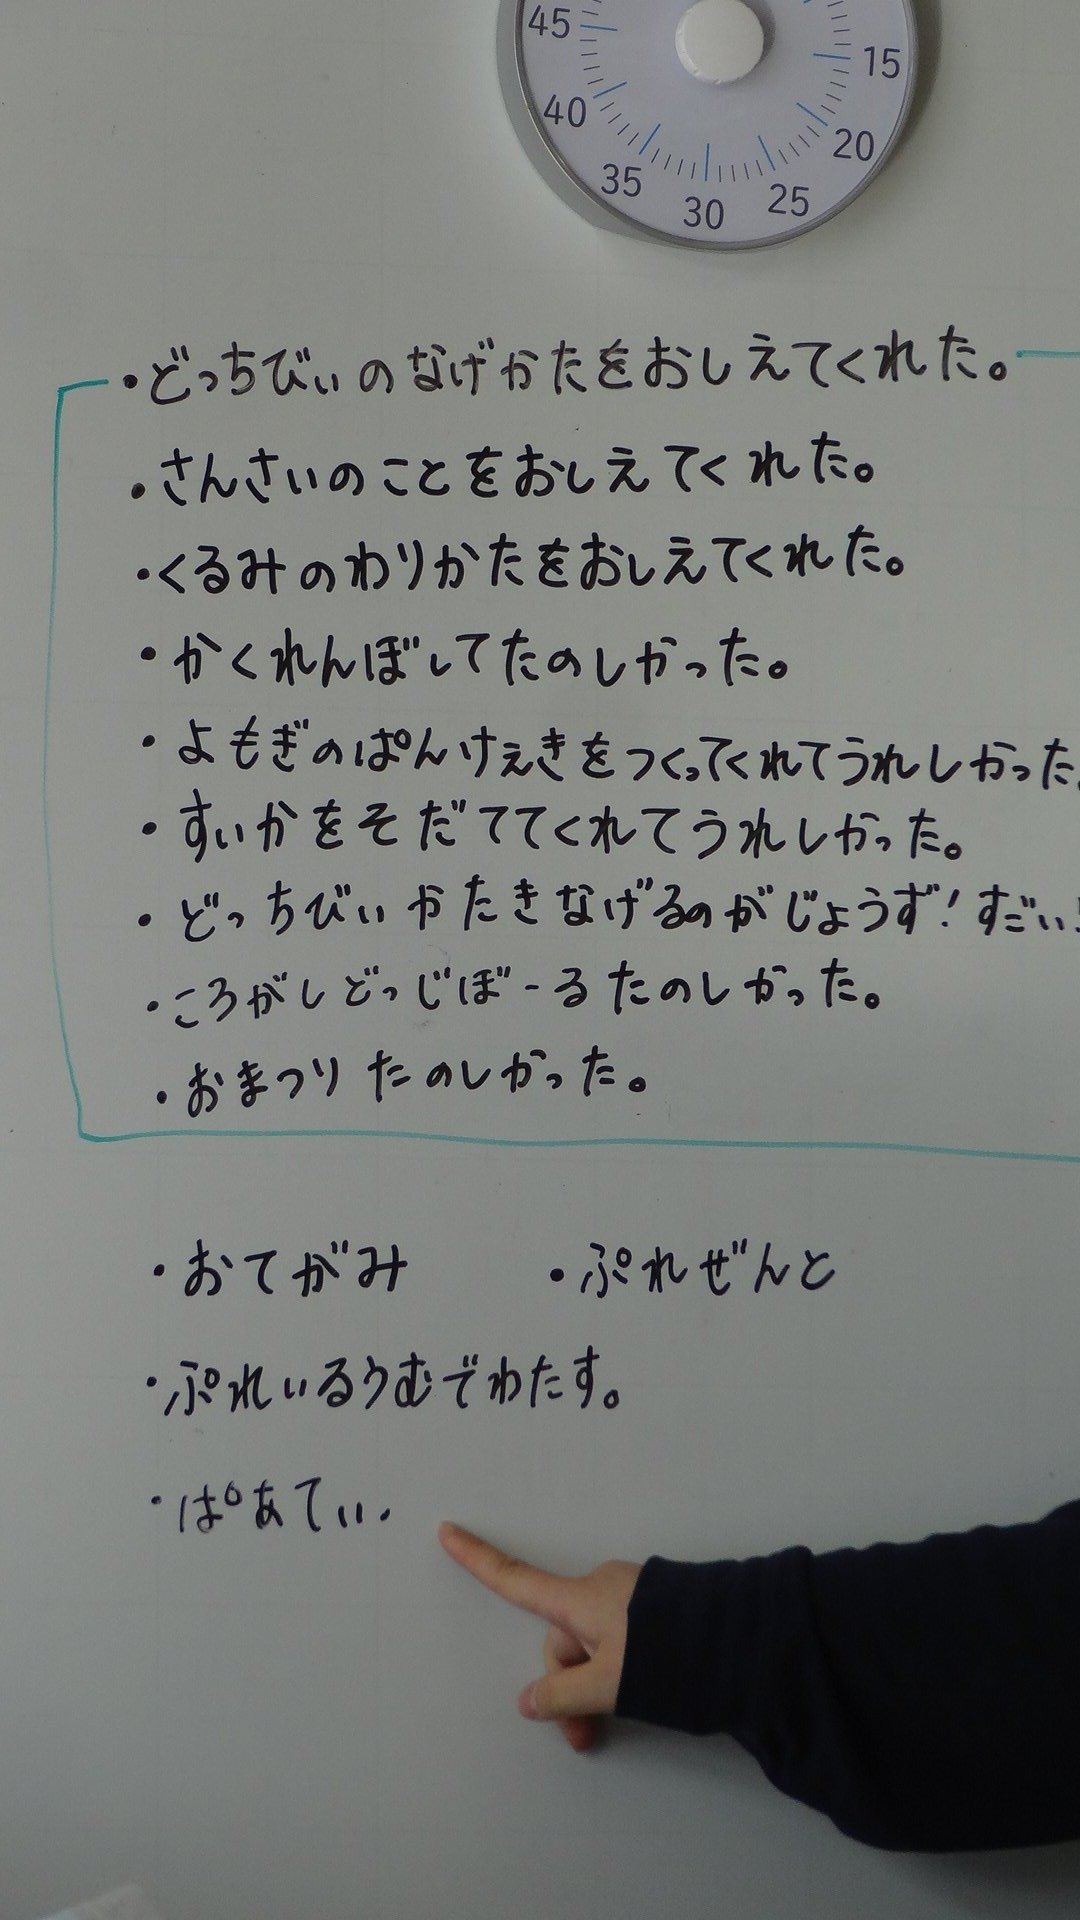 45
15
40
20
35
25
30
・どっちびぃのなげかたをおしえてくれた。
・さんさいのことをおしえてくれた。
・くるみのわりかたをおしえてくれた。
・かくれんぼしてたのしかった。
・よもぎのぱんけぇきをつくってくれてうれしかった。
・すいかをそだててくれてうれしかった。
・どっちびぃかたきなげるのがじょうず!すごい!
・ころがしどっじぼーるたのしかった。
・おまつりたのしかった。
・おてがみ ・ぷれぜんと
・ぷれいるうむでわたす。
・ぱあてぃ.